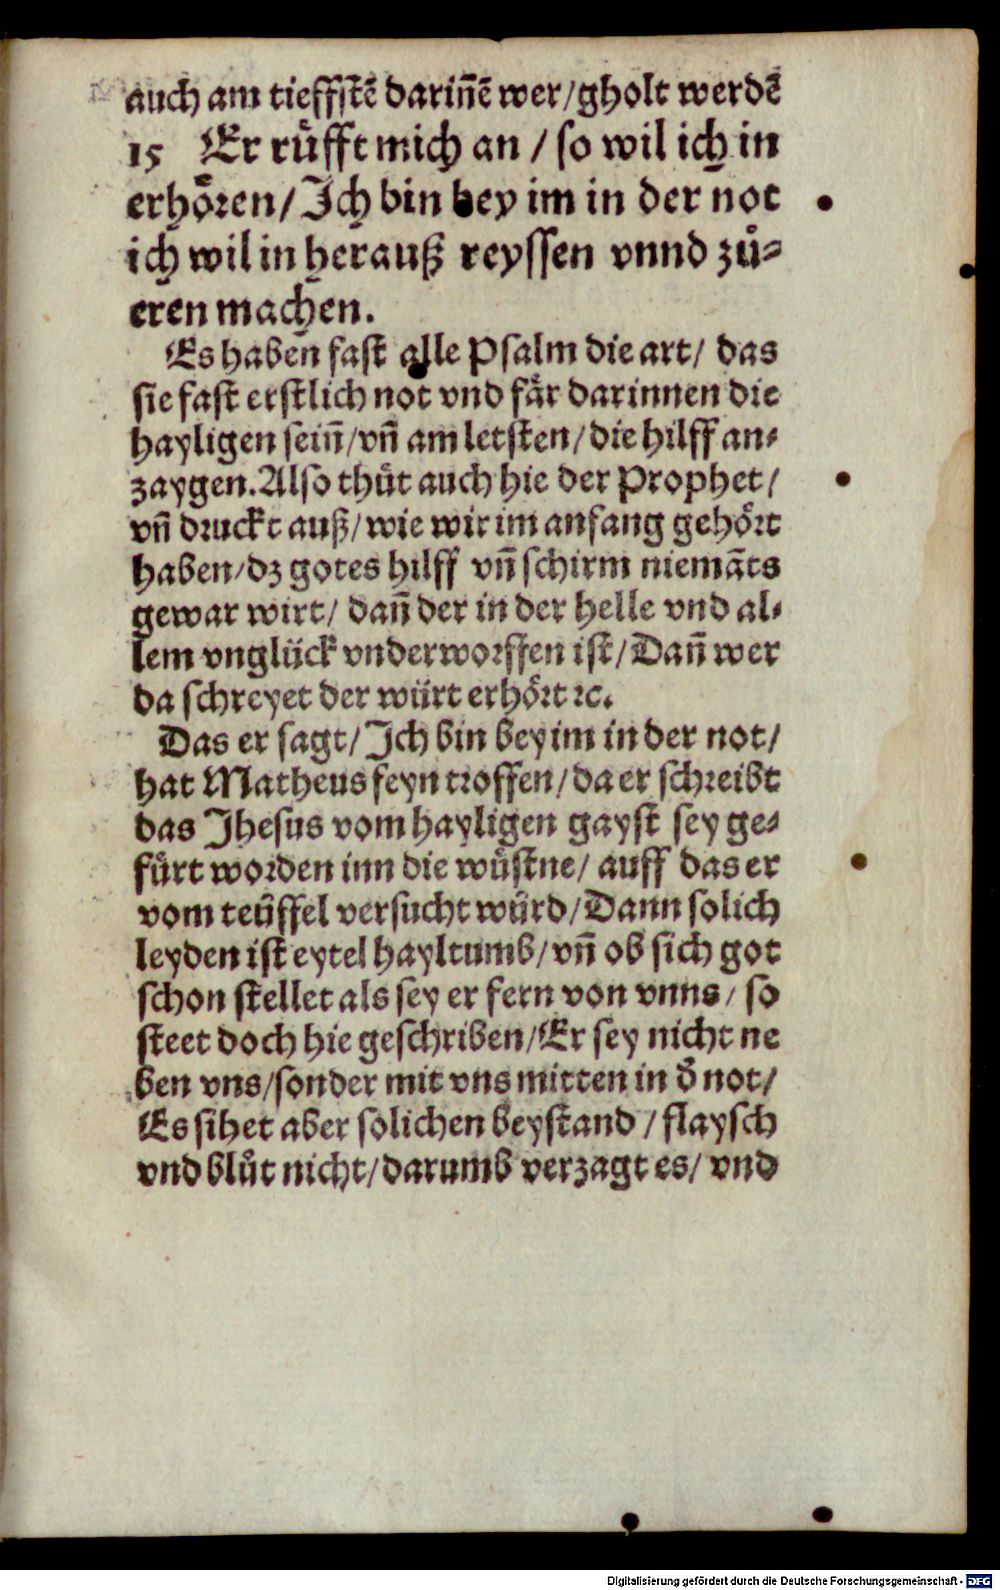 auch am tieffstē darin̄ē wer/gholt werdē
15 Er rüfft mich an / so wil ich in
erhören/ Ich bin bey im in der not
ich wil in herauß reyssen vnnd zů-
eren machen.
Es haben fast alle Psalm die art/ das
sie fast erstlich not vnd fär darinnen die
hayligen sein̄/vn̄ am letsten/die hilff an-
zaygen.Also thůt auch hie der Prophet/
vn̄ druckt auß/wie wir im anfang gehört
haben/dz gotes hilff vn̄ schirm niemāts
gewar wirt/ dan̄ der in der helle vnd al-
lem vnglück vnderworffen ist/Dan̄ wer
da schreyet der würt erhört ꝛc.
Das er sagt/Ich bin bey im in der not/
hat Matheus feyn troffen/da er schreibt
das Jhesus vom hayligen gayst sey ge-
fürt worden inn die wüstne/ auff das er
vom teüffel versucht würd/Dann solich
leyden ist eytel hayltumb/vn̄ ob sich got
schon stellet als sey er fern von vnns/ so
steet doch hie geschriben/Er sey nicht ne
ben vns/sonder mit vns mitten in d̄ not/
Es sihet aber solichen beystand / flaysch
vnd blůt nicht/darumb verzagt es/ vnd
Digitalisierung gefördert durch die Deutsche Forschungsgemeinschaft - DFG